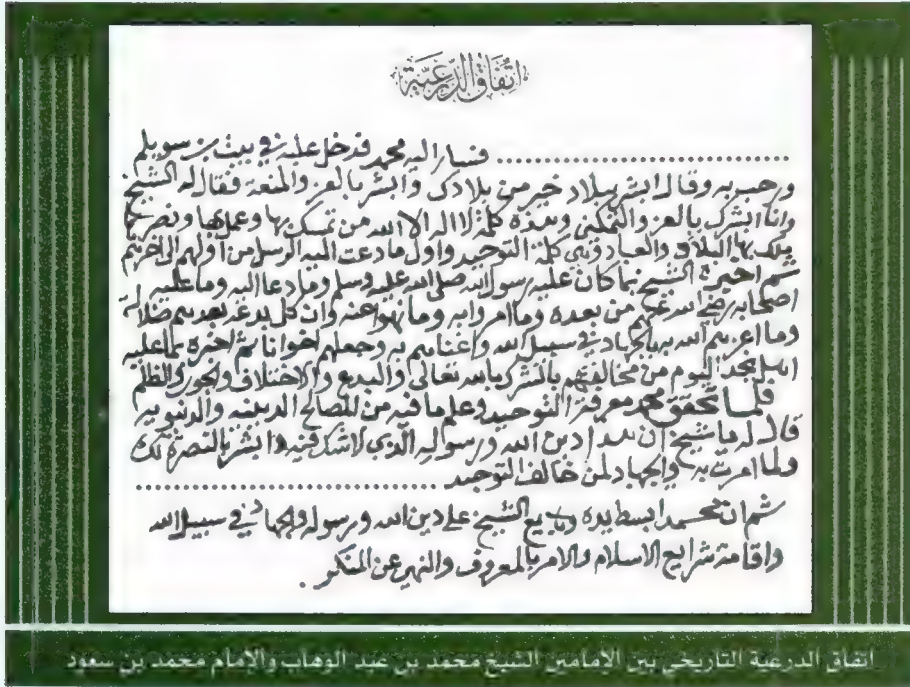 اتفاق الدرعية
................................ فسار اليه محمد فدخل عليه في بيت بن سويلم
ورحب به وقال ابشر ببلاد خير من بلادك وابشر بالعز والمنعة فقال له الشيخ
وانا ابشرك بالعز والتمكين وهذه كلمة لا اله الا الله من تمسك بها وعمل بها ونصرها
ملك بها البلاد والعباد وهي كلمة التوحيد واول ما دعت اليه الرسل من اولهم الى اخرهم
ثم اخبره الشيخ بما كان عليه رسول الله صلى الله عليه وسلم وما دعا اليه وما عليه
اصحابه رضي الله عنهم من بعده وما امروا به وما نهوا عنه وان كل بدعة بعدهم ضلالة
وما اعزهم الله به بالجهاد في سبيل الله واغناهم به وجعلهم اخوانا ثم اخبره بما عليه
اهل نجد اليوم من مخالفتهم بالشرك بالله تعالى والبدع والاختلاف والجور والظلم
فلما تحقق محمد معرفة التوحيد وعلم ما فيه من المصالح الدينيه والدنيويه
قال له يا شيخ ان هذا دين الله ورسوله الذي لا شك فيه وابشر بالنصرة لك
ولما امرت به والجهاد لمن خالف التوحيد ................................
ثم ان محمدا بسط يده وبايع الشيخ على دين الله ورسوله والجهاد في سبيل الله
واقامة شرايع الاسلام والامر بالمعروف والنهي عن المنكر .
اتفاق الدرعية التاريخي بين الإمامين الشيخ محمد بن عبد الوهاب والإمام محمد بن سعود